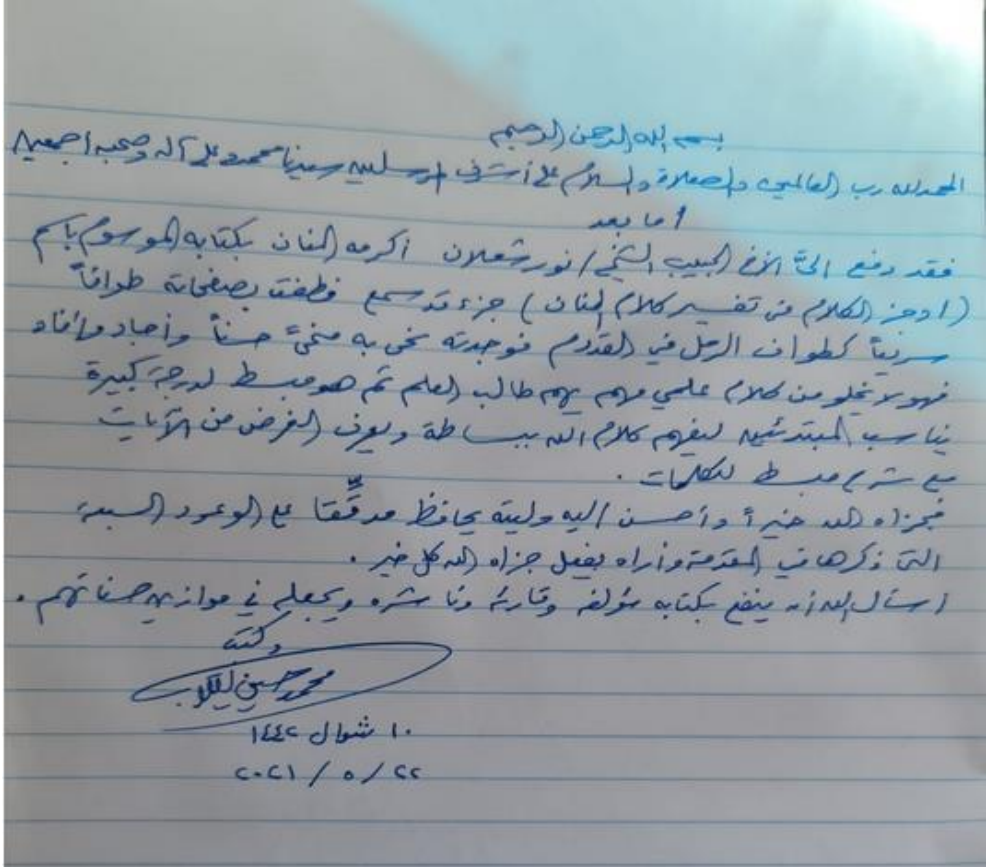 بسم الله الرحمن الرحيم
الحمد لله رب العالمين والصلاة والسلام على أشرف المرسلين سيدنا محمد وعلى آله وصحبه اجمعين
أما بعد
فقد دفع اليَّ الأخ الحبيب الشيخ / نور شعلان اكرمه المنان بكتابه الموسوم باسم
(اوجز الكلام من تفسير كلام المنان) جزء قد سمع فطفت بصفحاته طوافاً
سريعاً كطواف الرمل في القدوم فوجدته نحى به منحىً حسناً وأجاد وأفاد
فهو لا يخلو من كلام علمي مهم يهم طالب العلم ثم هو مبسط لدرجة كبيرة
يناسب المبتدئين ليفهم كلام الله ببساطة ويعرف الغرض من الآيات
مع شرح مبسط للكلمات .
فجزاه الله خيراً وأحسن اليه وليته يحافظ مدقِّقا على الوعود السبعة
التى ذكرها في المقدمة وأراه يفعل جزاه الله كل خير .
اسأل الله أن ينفع بكتابه مؤلفه وقارئه وناشره ويجعله في موازين حسناتهم .
وكتبه
محمد حسين
١٠ شوال ١٤٤٢
٢٢ / ٥ / ٢٠٢١